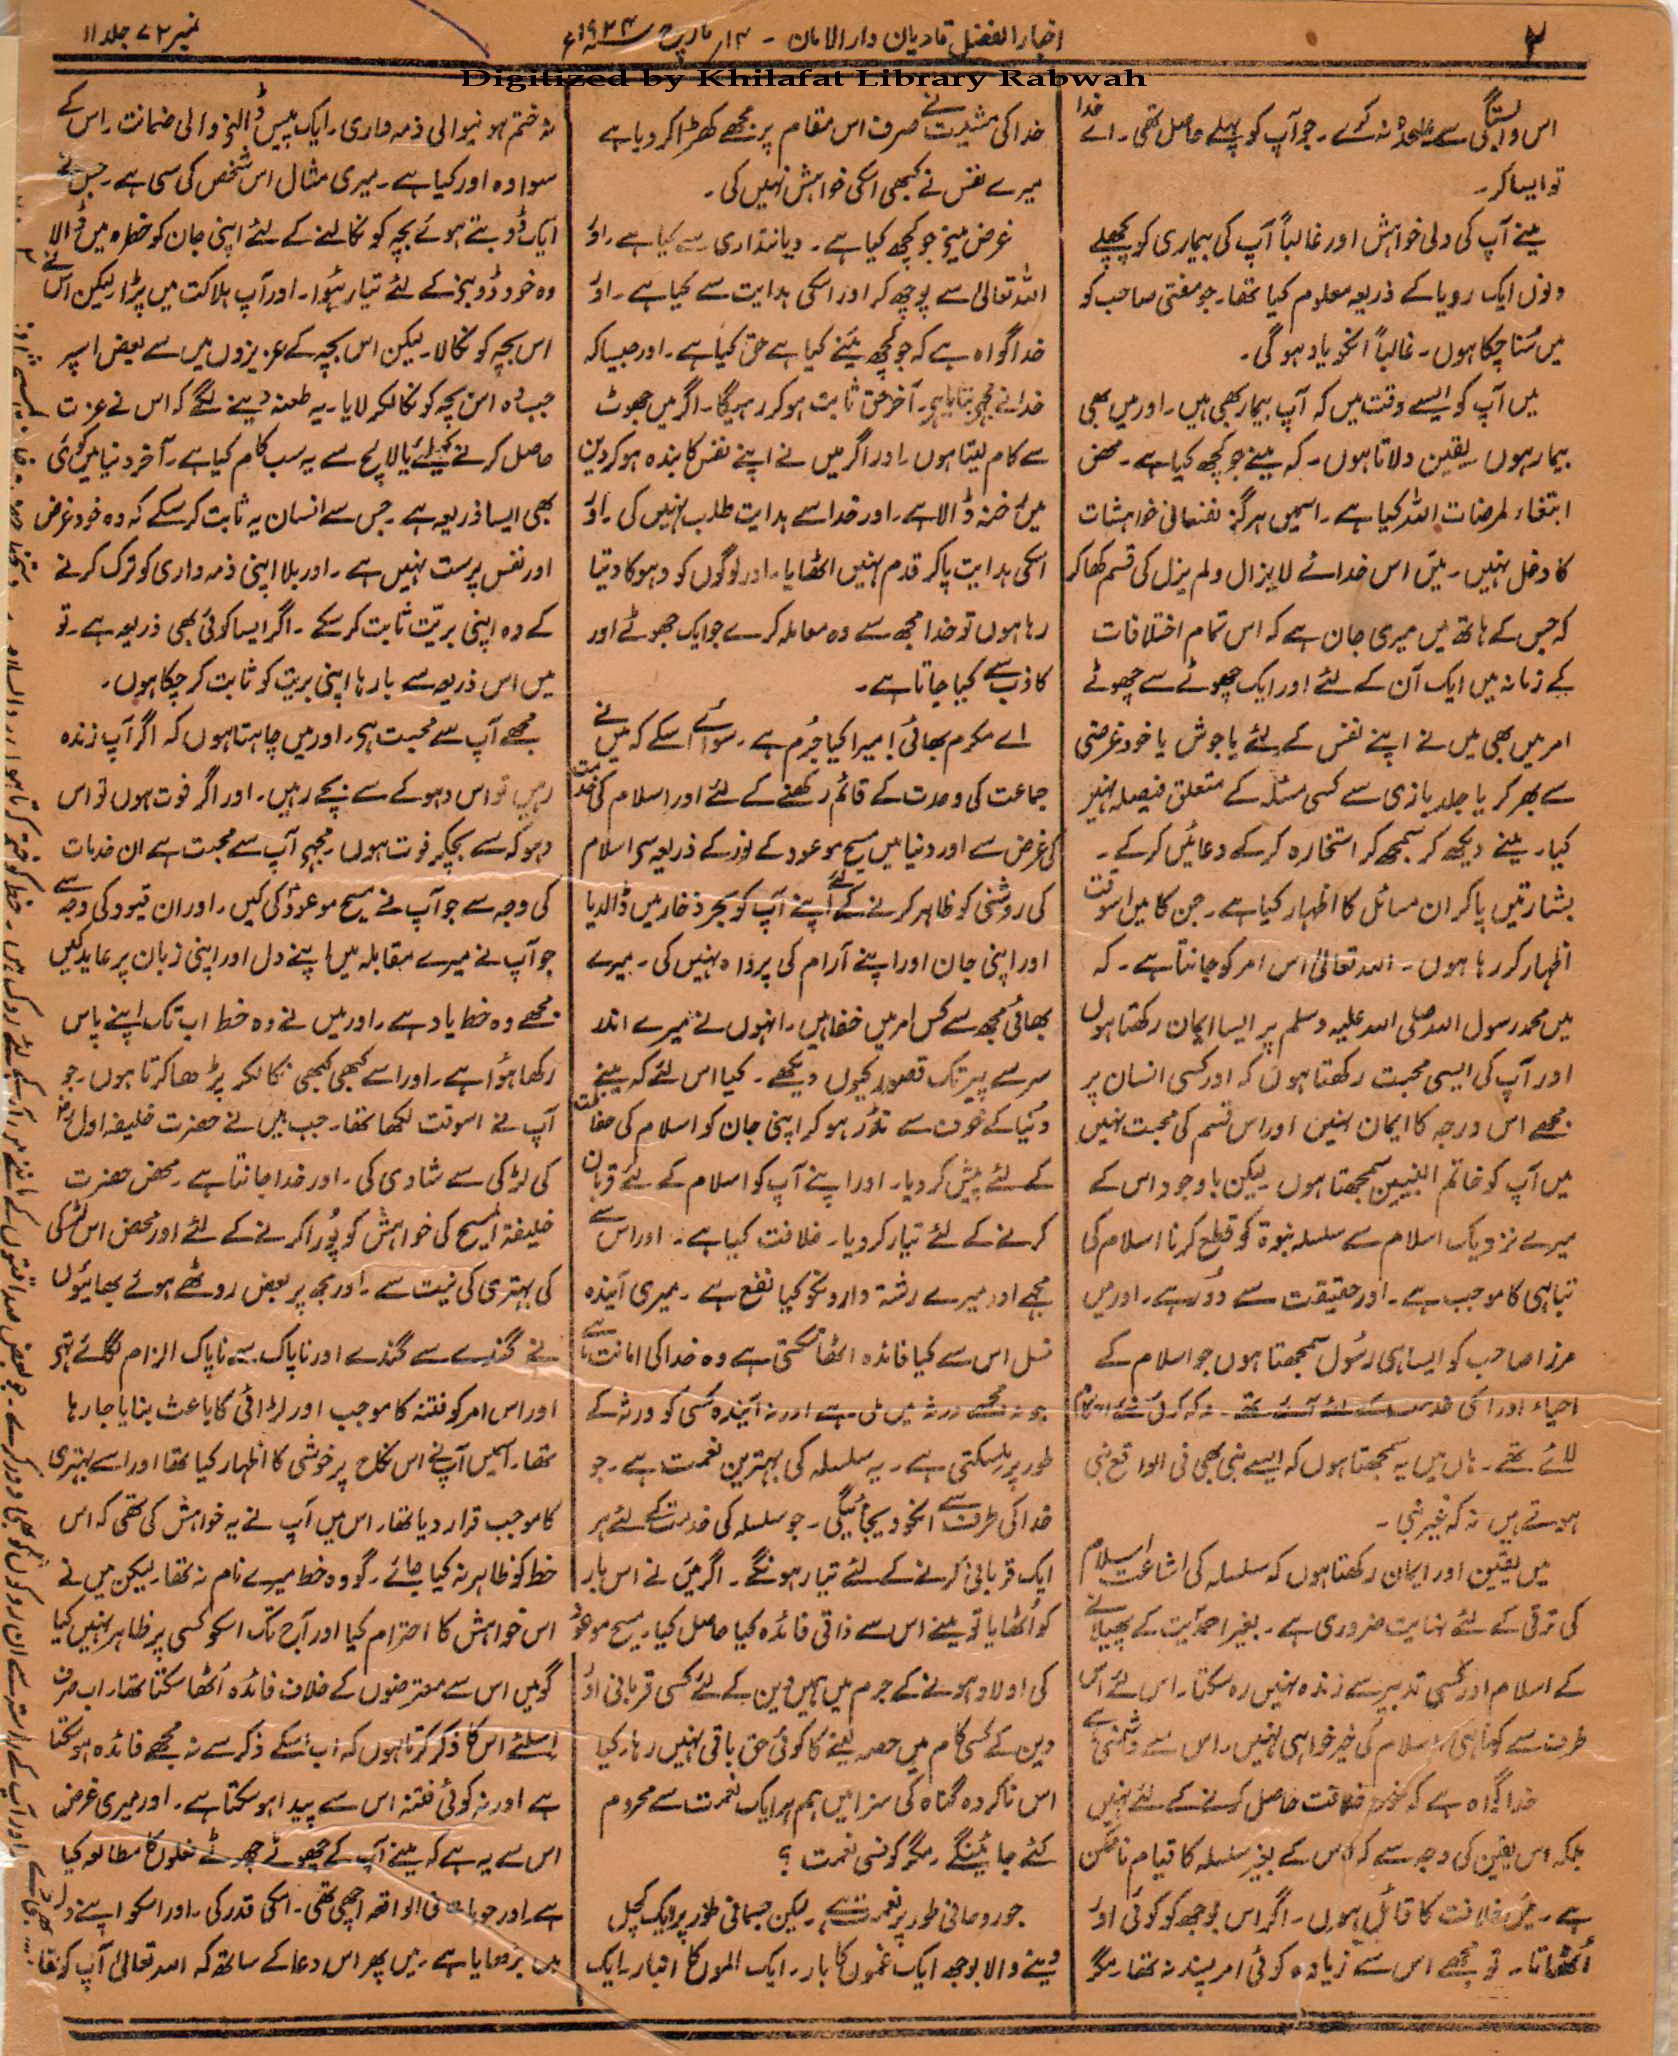 ۲
اخبار الفضل قادیان دارالامان - ۱۴ر مارچ ۱۹۲۴ء
نمبر ۷۲ جلد ۱۱
Digitized by Khilafat Library Rabwah
اس وابستگی سے علیحدہ نہ کرے۔ جو آپ کو پہلے حاصل تھی۔ اے خدا
تو ایسا کر۔
مینے آپ کی دلی خواہش اور غالباً آپ کی بیماری کو پچھلے
دنوں ایک رویا کے ذریعہ معلوم کیا تھا۔ جو مفتی صاحب کو
میں سنا چکا ہوں۔ غالباً انکو یاد ہوگی۔
میں آپ کو ایسے وقت میں کہ آپ بیمار بھی ہیں۔ اور میں بھی
بیمار ہوں یقین دلاتا ہوں۔ کہ مینے جو کچھ کیا ہے۔ محض
ابتغاء لمرضات اللہ کیا ہے۔ اسمیں ہرگز نفسانی خواہشات
کا دخل نہیں۔ میں اس خدائے لایزال ولم یزل کی قسم کھا کر
کہ جس کے ہاتھ میں میری جان ہے کہ اس تمام اختلافات
کے زمانہ میں ایک آن کے لئے اور ایک چھوٹے سے چھوٹے
امر میں بھی میں نے اپنے نفس کے لئے یا جوش یا خود غرضی
سے بھر کر یا جلد بازی سے کسی مسئلہ کے متعلق فیصلہ نہیں
کیا۔ مینے دیکھ کر سمجھ کر استخارہ کر کے دعائیں کر کے۔
بشارتیں پا کر ان مسائل کا اظہار کیا ہے۔ جن کا میں اسوقت
اظہار کر رہا ہوں۔ اللہ تعالیٰ اس امر کو جانتا ہے۔ کہ
میں محمد رسول اللہ صلی اللہ علیہ وسلم پر ایسا ایمان رکھتا ہوں
اور آپ کی ایسی محبت رکھتا ہوں کہ اور کسی انسان پر
مجھے اس درجہ کا ایمان نہیں اور اس قسم کی محبت نہیں
میں آپ کو خاتم النبیین سمجھتا ہوں لیکن باوجود اس کے
میرے نزدیک اسلام سے سلسلہ نبوۃ کو قطع کرنا اسلام کی
تباہی کا موجب ہے۔ اور حقیقت سے دور ہے۔ اور میں
مرزا صاحب کو ایسا ہی رسول سمجھتا ہوں جو اسلام کے
احیاء اور اسکی خدمت کے لئے آئے تھے۔ نہ کہ کوئی نئے احکام
لائے تھے۔ ہاں میں یہ سمجھتا ہوں کہ ایسے نبی بھی فی الواقع نبی
ہوتے ہیں نہ کہ غیر نبی۔
میں یقین اور ایمان رکھتا ہوں کہ سلسلہ کی اشاعت اسلام
کی ترقی کے لئے نہایت ضروری ہے۔ بغیر احمدیت کے پھیلانے
کے اسلام اور کسی تدبیر سے زندہ نہیں رہ سکتا۔ اس لئے اس
طرف سے کوتاہی اسلام کی خیر خواہی نہیں۔ اس سے دشمنی ہے
خدا گواہ ہے کہ خلافت حاصل کرنے کے لئے نہیں
بلکہ اس یقین کی وجہ سے کہ اس کے بغیر سلسلہ کا قیام ناممکن
ہے۔ میں خلافت کا قائل ہوں۔ اگر اس بوجھ کو کوئی اور
اٹھاتا۔ تو مجھے اس سے زیادہ کوئی امر پسند نہ تھا۔ مگر
خدا کی مشیت نے صرف اس مقام پر مجھے کھڑا کر دیا ہے
میرے نفس نے کبھی اسکی خواہش نہیں کی۔
غرض مینے جو کچھ کیا ہے۔ دیانتداری سے کیا ہے۔ اور
اللہ تعالیٰ سے پوچھ کر اور اسکی ہدایت سے کیا ہے۔ اور
خدا گواہ ہے کہ جو کچھ مینے کیا ہے حق کیا ہے۔ اور جیسا کہ
خدا نے مجھے بتایا ہی۔ آخر حق ثابت ہو کر رہیگا۔ اگر میں جھوٹ
سے کام لیتا ہوں۔ اور اگر میں نے اپنے نفس کا بندہ ہو کر دین
میں رخنہ ڈالا ہے۔ اور خدا سے ہدایت طلب نہیں کی۔ اور
اسکی ہدایت پا کر قدم نہیں اٹھایا۔ اور لوگوں کو دھوکا دیتا
رہا ہوں تو خدا مجھ سے وہ معاملہ کرے جو ایک جھوٹے اور
کاذب سے کیا جاتا ہے۔
اے مکرم بھائی! میرا کیا جرم ہے۔ سوائے اسکے کہ میں نے
جماعت کی وحدت کے قائم رکھنے کے لئے اور اسلام کی خدمت
کی غرض سے اور دنیا میں مسیح موعود کے نور کے ذریعہ سے اسلام
کی روشنی کو ظاہر کرنے کے لئے اپنے آپ کو بحر ذخار میں ڈالدیا
اور اپنی جان اور اپنے آرام کی پرواہ نہیں کی۔ میرے
بھائی مجھ سے کس امر میں خفا ہیں۔ انہوں نے میرے اندر
سر سے پیر تک قصور کیوں دیکھے۔ کیا اس لئے کہ مینے
دنیا کے خوف سے نڈر ہو کر اپنی جان کو اسلام کی حفاظت
کے لئے پیش کر دیا۔ اور اپنے آپ کو اسلام کے لئے قربان
کرنے کے لئے تیار کر دیا۔ خلافت کیا ہے۔ اور اس سے
مجھے اور میرے رشتہ داروں کو کیا نفع ہے۔ میری آیندہ
نسل اس سے کیا فائدہ اٹھا سکتی ہے وہ خدا کی امانت ہے
جو نہ مجھے ورثہ میں ملی ہے اور نہ آیندہ کسی کو ورثہ کے
طور پر مل سکتی ہے۔ یہ سلسلہ کی بہترین نعمت ہے۔ جو
خدا کی طرف سے انکو دیجائیگی۔ جو سلسلہ کی خدمت کے لئے ہر
ایک قربانی کرنے کے لئے تیار ہونگے۔ اگر میں نے اس بار
کو اٹھایا تو مینے اس سے ذاتی فائدہ کیا حاصل کیا۔ مسیح موعود
کی اولاد ہونے کے جرم میں ہمیں دین کے لئے کسی قربانی اور
دین کے کسی کام میں حصہ لینے کا کوئی حق باقی نہیں رہا۔ کیا
اس ناکردہ گناہ کی سزا میں ہم ہر ایک نعمت سے محروم
کئے جائینگے۔ مگر کونسی نعمت؟
جو روحانی طور پر نعمت ہے۔ لیکن جسمانی طور پر ایک کچل
دینے والا بوجھ ایک غموں کا بار۔ ایک الموں کا انبار۔ ایک
نہ ختم ہونیوالی ذمہ واری۔ ایک پیس ڈالنے والی ضمانت۔ اس کے
سوا وہ اور کیا ہے۔ میری مثال اس شخص کی سی ہے۔ جس نے
ایک ڈوبتے ہوئے بچہ کو نکالنے کے لئے اپنی جان کو خطرہ میں ڈالا
وہ خود ڈوبنے کے لئے تیار ہوا۔ اور آپ ہلاکت میں پڑا۔ لیکن اس نے
اس بچہ کو نکالا۔ لیکن اس بچہ کے عزیزوں میں سے بعض اسپر
جب وہ اس بچہ کو نکالکر لایا۔ یہ طعنہ دینے لگے کہ اس نے عزت
حاصل کرنے کیلئے یا لالچ سے یہ سب کام کیا ہے۔ آخر دنیا میں کوئی
بھی ایسا ذریعہ ہے۔ جس سے انسان یہ ثابت کر سکے کہ وہ خود غرض
اور نفس پرست نہیں ہے۔ اور بلا اپنی ذمہ داری کو ترک کرنے
کے وہ اپنی بریت ثابت کر سکے۔ اگر ایسا کوئی بھی ذریعہ ہے۔ تو
میں اس ذریعہ سے بارہا اپنی بریت کو ثابت کر چکا ہوں۔
مجھے آپ سے محبت ہی۔ اور میں چاہتا ہوں کہ اگر آپ زندہ
رہیں تو اس دہوکے سے بچے رہیں۔ اور اگر فوت ہوں تو اس
دہوکہ سے بچکر فوت ہوں۔ مجھے آپ سے محبت ہے ان خدمات
کی وجہ سے جو آپ نے مسیح موعودؑ کی کیں۔ اور ان قیود کی وجہ سے
جو آپ نے میرے مقابلہ میں اپنے دل اور اپنی زبان پر عاید کیں
مجھے وہ خط یاد ہے۔ اور میں نے وہ خط اب تک اپنے پاس
رکھا ہوا ہے۔ اور اسے کبھی کبھی نکالکر پڑھا کرتا ہوں۔ جو
آپ نے اسوقت لکھا تھا۔ جب میں نے حضرت خلیفہ اولؓ
کی لڑکی سے شادی کی۔ اور خدا جانتا ہے۔ محض حضرت
خلیفۃ المسیح کی خواہش کو پورا کرنے کے لئے اور محض اس لڑکی
کی بہتری کی نیت سے۔ اور مجھ پر بعض روٹھے ہوئے بھائیوں
نے گندے سے گندے اور ناپاک سے ناپاک الزام لگائے تھے
اور اس امر کو فتنہ کا موجب اور لڑائی کا باعث بنایا جا رہا
تھا۔ اسمیں آپ نے اس نکاح پر خوشی کا اظہار کیا تھا اور اسے بہتری
کا موجب قرار دیا تھا۔ اس میں آپ نے یہ خواہش کی تھی کہ اس
خط کو ظاہر نہ کیا جائے۔ گو وہ خط میرے نام نہ تھا۔ لیکن میں نے
اس خواہش کا احترام کیا اور آج تک اسکو کسی پر ظاہر نہیں کیا
گو میں اس سے معترضوں کے خلاف فائدہ اٹھا سکتا تھا۔ اب صرف
اسلئے اس کا ذکر کرتا ہوں کہ اب اسکے ذکر سے نہ مجھے فائدہ ہو سکتا
ہے اور نہ کوئی فتنہ اس سے پیدا ہو سکتا ہے۔ اور میری غرض
اس سے یہ ہے کہ مینے آپ کے چھوٹے چھوٹے فعلوں کا مطالعہ کیا
ہے۔ اور جو بات فی الواقعہ اچھی تھی۔ اسکی قدر کی۔ اور اسکو اپنے دل
میں بڑھایا ہے۔ میں پھر اس دعا کے ساتھ کہ اللہ تعالیٰ آپ کو شفا